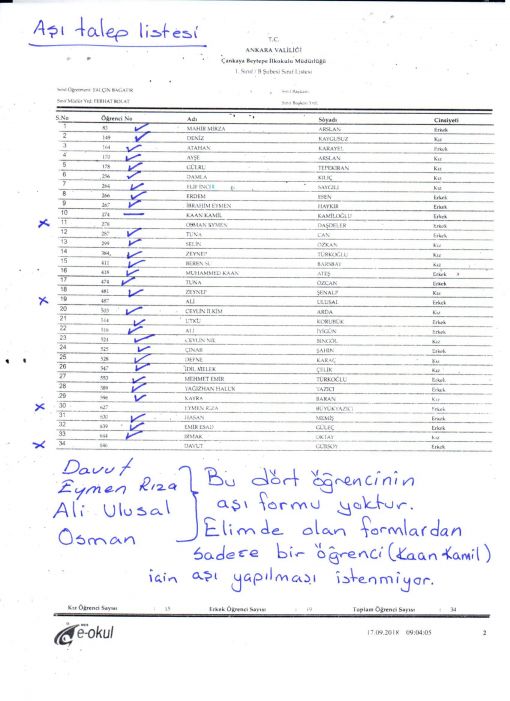 Aşı talep listesi
T.C.
ANKARA VALİLİĞİ
Çankaya Beytepe İlkokulu Müdürlüğü
1. Sınıf / B Şubesi Sınıf Listesi
Sınıf Öğretmeni YALÇIN BAĞATIR
Sınıf Başkanı
Sınıf Müdür Yrd. FERHAT BOLAT
Sınıf Başkan Yrd.
S.No Öğrenci No Adı Soyadı Cinsiyeti
1 83 MAHİR MİRZA ARSLAN Erkek
2 149 DENİZ KAYGUSUZ Kız
3 164 ATAHAN KARAYEL Erkek
4 170 AYŞE ARSLAN Kız
5 178 GÜLRU TEPEKIRAN Kız
6 256 DAMLA KILIÇ Kız
7 264 ELİF İNCİ SAYGILI Kız
8 266 ERDEM ESEN Erkek
9 267 İBRAHİM EYMEN HAYKIR Erkek
10 274 KAAN KAMİL KAMİLOĞLU Erkek
11 276 OSMAN DAŞDELER Erkek
12 287 TUNA CAN Erkek
13 299 SELİN ÖZKAN Kız
14 384 ZEYNEP TÜRKOĞLU Kız
15 411 BEREN SU BARSBAY Kız
16 418 MUHAMMED KAAN ATEŞ Erkek
17 474 TUNA ÖZCAN Erkek
18 481 ZEYNEP ŞENALP Kız
19 487 ALİ ULUSAL Erkek
20 503 CEYLİN İLKİM ARDA Kız
21 514 UTKU KORUBÜK Erkek
22 516 ALİ İYİGÜN Erkek
23 524 CEYLİN NİL BİNGÖL Kız
24 525 ÇINAR ŞAHİN Erkek
25 528 DEFNE KARAÇ Kız
26 547 İDİL MELEK ÇELİK Kız
27 553 MEHMET EMİR TÜRKOĞLU Erkek
28 589 YAĞIZHAN HALUK YAZICI Erkek
29 596 KAYRA BARAN Kız
30 627 EYMEN RIZA BÜYÜKYAZICI Erkek
31 630 HASAN MEMİŞ Erkek
32 639 EMİR ESAD GÜLEÇ Erkek
33 644 IRMAK OKTAY Kız
34 646 DAVUT GÜRSOY Erkek
Davut
Eymen Rıza
Ali Ulusal
Osman
Bu dört öğrencinin
aşı formu yoktur.
Elimde olan formlardan
sadece bir öğrenci (Kaan Kamil)
için aşı yapılması istenmiyor.
Kız Öğrenci Sayısı : 15 Erkek Öğrenci Sayısı : 19 Toplam Öğrenci Sayısı : 34
e-okul
17.09.2018 09:04:05 2